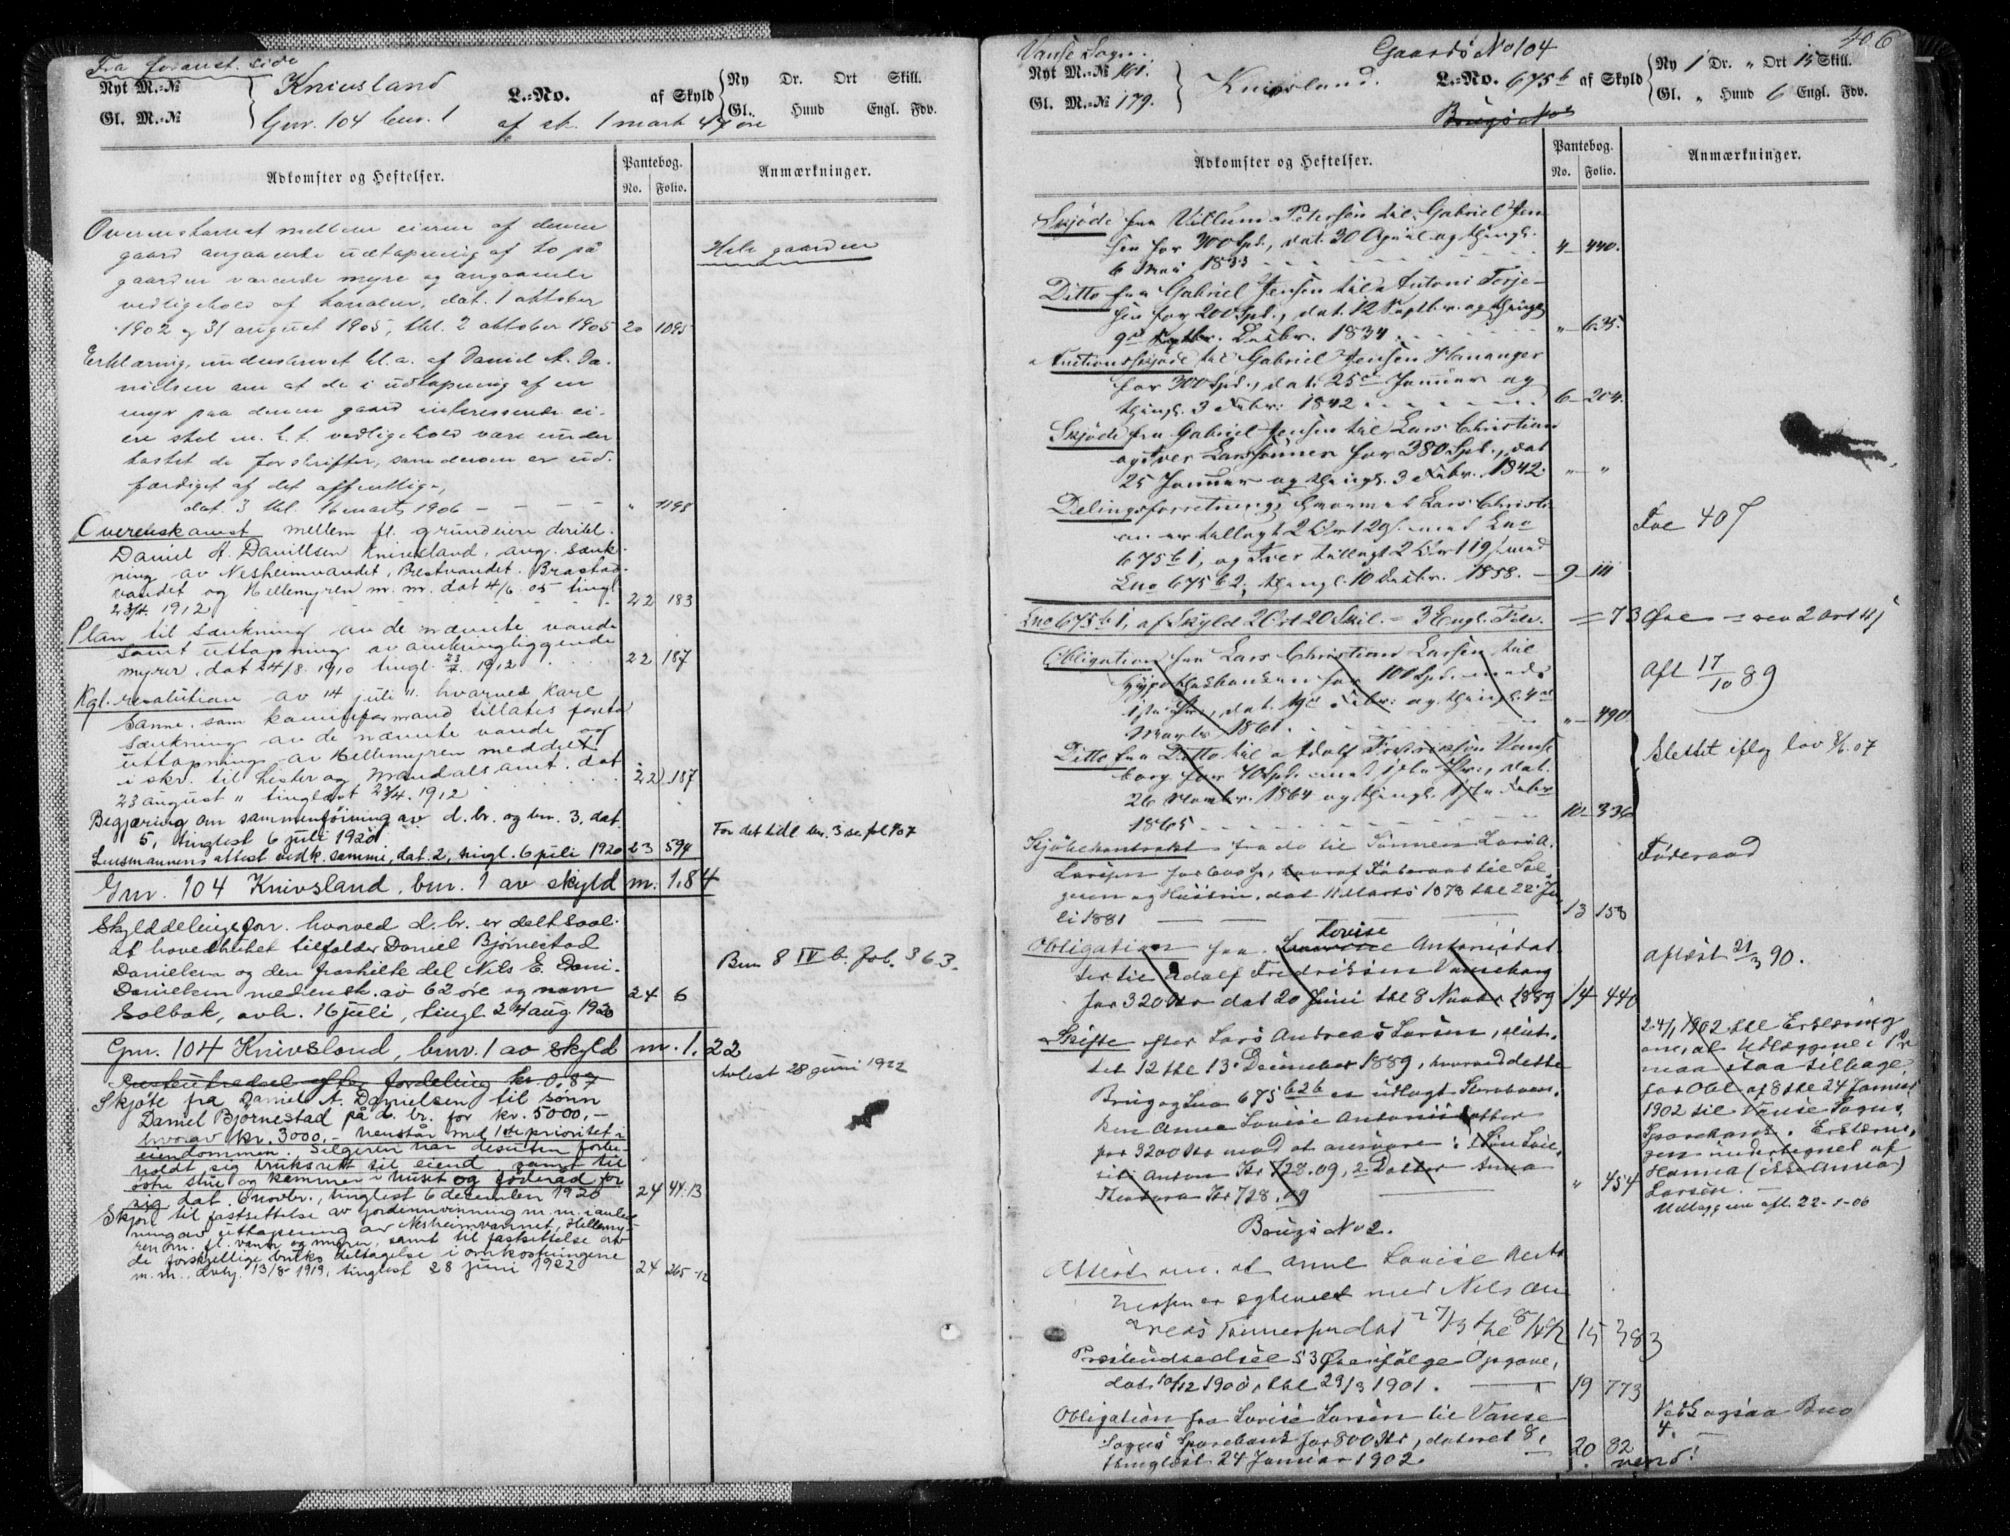 Fra foranst. side
Nyt M.-No
Gl. M.-No
Knivsland
Gnr. 104 bnr. 1
L.-No.
af sk. 1 mark 47 øre
af Skyld
Ny Dr. Ort Skill.
Gl. Hund Engl. Fdv.
Adkomster og Heftelser.
Pantebog.
No. Folio.
Anmærkninger.
Overenskomst mellem eierne af denne
gaard angaaende udtapning af to på
gaarden værende myre og angaaende
vedligehold af kanalen, dat. 1 oktober
1902 og 31 august 1905, thl. 2 oktober 1905 20 1095
Hele gaarden
Erklæring, underskrevet bl.a. af Daniel A. Da-
nielsen om at de i udtapning af en
myr paa denne gaard interesserede ei-
ere skal m. h. t. vedligehold være under
kastet de forskrifter, som derom er ud-
færdiget af det offentlige,
dat. 3 thl. 16 marts 1906 - - - - " 1198
Overenskomst mellem fl. grundeiere deribl.
Daniel A. Daniellsen Knivsland, ang. sænk-
ning av Nesheimvandet, Prestvandet, Brastad-
vandet og Hellemyren m. m. dat 4/6 05 tingl
23/4 1912 22 183
Plan til sænkning av de nævnte vande
samt uttapning av omkringliggende
myrer, dat 24/8 1910 tingl. 1912 22 187
Kgl. resolution av 14 juli " hvorved Karl
Sanne som komiteformand tillates foreta
sænkning av de nævnte vande og
uttapning av Hellemyren meddelt
i skr. til Lister og Mandals amt. dat
23 august " tinglæst 23/4. 1912 22 187
Begjæring om sammenføining av d. br. og bn. 3, dat.
5, tinglest 6 juli 1920
For det tidl bnr. 3 se fol 407
Lensmannens attest vedk. samme, dat. 2, tingl. 6 juli 1920 23 594
Gnr. 104 Knivsland, bnr. 1 av skyld m. 1.84
Skylddelingsforr. hvorved d. br. er delt saal.
at hovedbølet tilfalder Daniel Bjørnestad
Danielsen og den fraskilte del Nils E. Dani-
Danielsen med en sk. av 62 øre og navn
Solbak, avh. 16 juli, tingl 24 aug 1920 24 6
Bnr 8 IV b. fol. 363.
Gnr. 104 Knivsland, bnr. 1 av skyld m. 1.22
Presteutredsel efter fordeling kr. 0.87
Avlest 28 juni 1922
Skjøte fra Daniel A. Danielsen til sønn
Daniel Bjørnestad på d. br. for kr. 5000,-
hvorav kr. 3000,- henstår med 1ste prioritet i
eiendommen. Selgeren har desuten forbe-
holdt sig bruksrett til eiend. samt til
østre stue og kammer i huset og føderad for
sig dat. 6 novbr., tinglest 6 december 1920 24 44.13
Skjøn til fastsettelse av jordinnvinning m. m. i anled-
ning av uttapning av Nesheimvannet, Hellemy-
ren m. fl. vann og myrer, samt til fastsettelse av
de forskjellige bruks deltagelse i omkostningene
m. m., avhj. 13/8 1919, tinglest 28 juni 1922 24 265-12
406
Vanse Sogn.
Nyt M.-No 161.
Gl. M.-No 179.
Knivsland.
Gaards No 104
L.-No. 675 b af Skyld
Brugs No
Ny 1 Dr. " Ort 15 Skill.
Gl. " Hund 6 Engl. Fdv.
Adkomster og Heftelser.
Pantebog.
No. Folio.
Anmærkninger.
Skjøde fra Villum Petersen til Gabriel Jen
sen for 300 Spd., dat. 30 April og thingl.
6 Mai 1833 4 440.
Ditto fra Gabriel Jensen til Antoni Terje-
sen for 200 Spd., dat. 12 Septbr. og thingl
9de Decbr. 1834 " 635.
Auctionsskjøde til Gabriel Jensen Hananger
for 300 Spd., dat. 25de Januar og
thingl. 3 Febr. 1842 6 204.
Skjøde fra Gabriel Jensen til Lars Christian
og Iver Larssønner for 380 Spd., dat
25 Januar og thingl. 3 Febr. 1842. " "
Delingsforretning, hvorved Lars Christi
an er tillagt 2 Ort 20 s. med Lno
675 b 1, og Iver tillagt 2 Ort 19 s. med
Lno 675 b 2, thingl. 10 Decbr. 1858. 9 111
Fol 407
Lno 675 b 1, af Skyld 2 Ort 20 Skil. = 3 Engl. Fdv. = 73 Øre = rev 2 ort 4 s
Obligation fra Lars Christian Larsen til
Hypothekbanken for 100 Spd. med
1ste Pr., dat. Febr. og thingl. 4de
Marts 1861. " 490
Aflt 17/10 89
Ditto fra Ditto til Adolf Fredriksen Vanse
borg for 70 Spd. med Pr., dat.
26 Novbr. 1864 og thingl. 1ste Febr
1865 10 336
Slettet iflg lov 8/6.07
Kjøbekontrakt fra do til Sønnen Lars A.
Larsen for 600 Sp, hvoraf Føderaad til Sæl-
geren og Hustru, dat. 11 Marts 1878 thl 22 Ju
li 1881 13 158
Føderaad
Lovise
Obligation fra Antonisdat-
ter til Adolf Fredriksen Vanseborg
for 320 Kr dat 20 Juni thl 8 Novbr 1889 14 440
Aflæst 21/3 90.
Skifte efter Lars Andreas Larsen, slut-
tet 12 thl 13 December 1889, hvorved dette
Brug og Lno 675 b 2 b er udlagt Enken
Anne Lovise Antonisdatter
for 3200 Kr mod at ansvare: 1 Søn
Anton Kr 728.09, 2 Datter Anna
Theodora Kr 728,09 " 454
24/1 1902 thl Erklæring
om, at Udlæggene i Pr
maa staa tilbage
for Obl af 8 thl 24 Januar
1902 til Vanse Sogns
Sparebank. Erklærin-
gen undertegnet af
Hanna (ikke Anna)
Larsen.
Udlæggene aflt. 22-1-06
Brugs No 2.
Attest om, at Anne Lovise
er egteviet med Nils An
dreas Tønnessen dat 27/3 thl 8/4 92 15 383
Præsteudredsel 53 Øre ifølge Opgave,
dat. 10/12 1900, thl 29/3 1901. 19 773
Obligation fra Lovise Larsen til Vanse
Sogns Sparebank for 800 Kr, dateret 8,
thinglæst 24 Januar 1902. 20 82
Vedk ogsaa Bno
4.
vend!